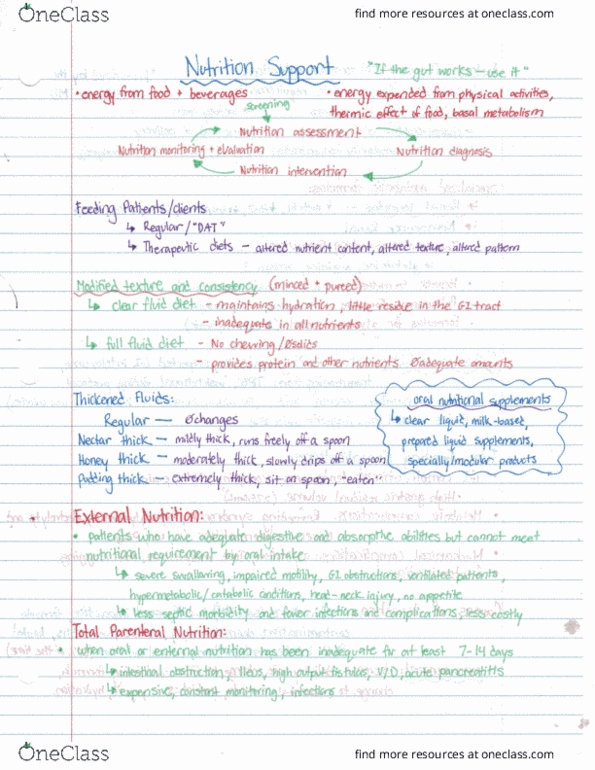 OneClass
find more resources at oneclass.com
Nutrition Support
"If the gut works - use it"
• energy from food + beverages
• energy expended from physical activities,
thermic effect of food, basal metabolism
screening
Nutrition assessment
Nutrition monitoring + evaluation
Nutrition diagnosis
Nutrition intervention
Feeding Patients/clients
↳ Regular/"DAT"
↳ Therapeutic diets - altered nutrient content, altered texture, altered pattern
Modified texture and consistency (minced + pureed)
↳ clear fluid diet - maintains hydration, little residue in the GI tract
- inadequate in all nutrients
↳ full fluid diet - No chewing/Øsolids
- provides protein and other nutrients Øadequate amounts
Thickened Fluids:
Regular — Øchanges
Nectar thick — mildly thick, runs freely off a spoon
Honey thick — moderately thick, slowly drips off a spoon
Pudding thick — extremely thick, sit on spoon, "eaten"
oral nutritional supplements
↳ clear liquid, milk-based,
prepared liquid supplements,
specially/modular products
External Nutrition:
• patients who have adequate digestive and absorptive abilities but cannot meet
nutritional requirement by oral intake
↳ severe swallowing, impaired motility, GI obstructions, ventilated patients,
hypermetabolic/catabolic conditions, head-neck injury, no appetite
↳ less septic morbidity and fewer infections and complications, less costly
Total Parenteral Nutrition:
• when oral or enternal nutrition has been inadequate for at least 7-14 days
↳ intestinal obstruction, illeus, high output fistulas, V/D, acute pancreatitis
↳ expensive, constant monitoring, infections
OneClass
find more resources at oneclass.com